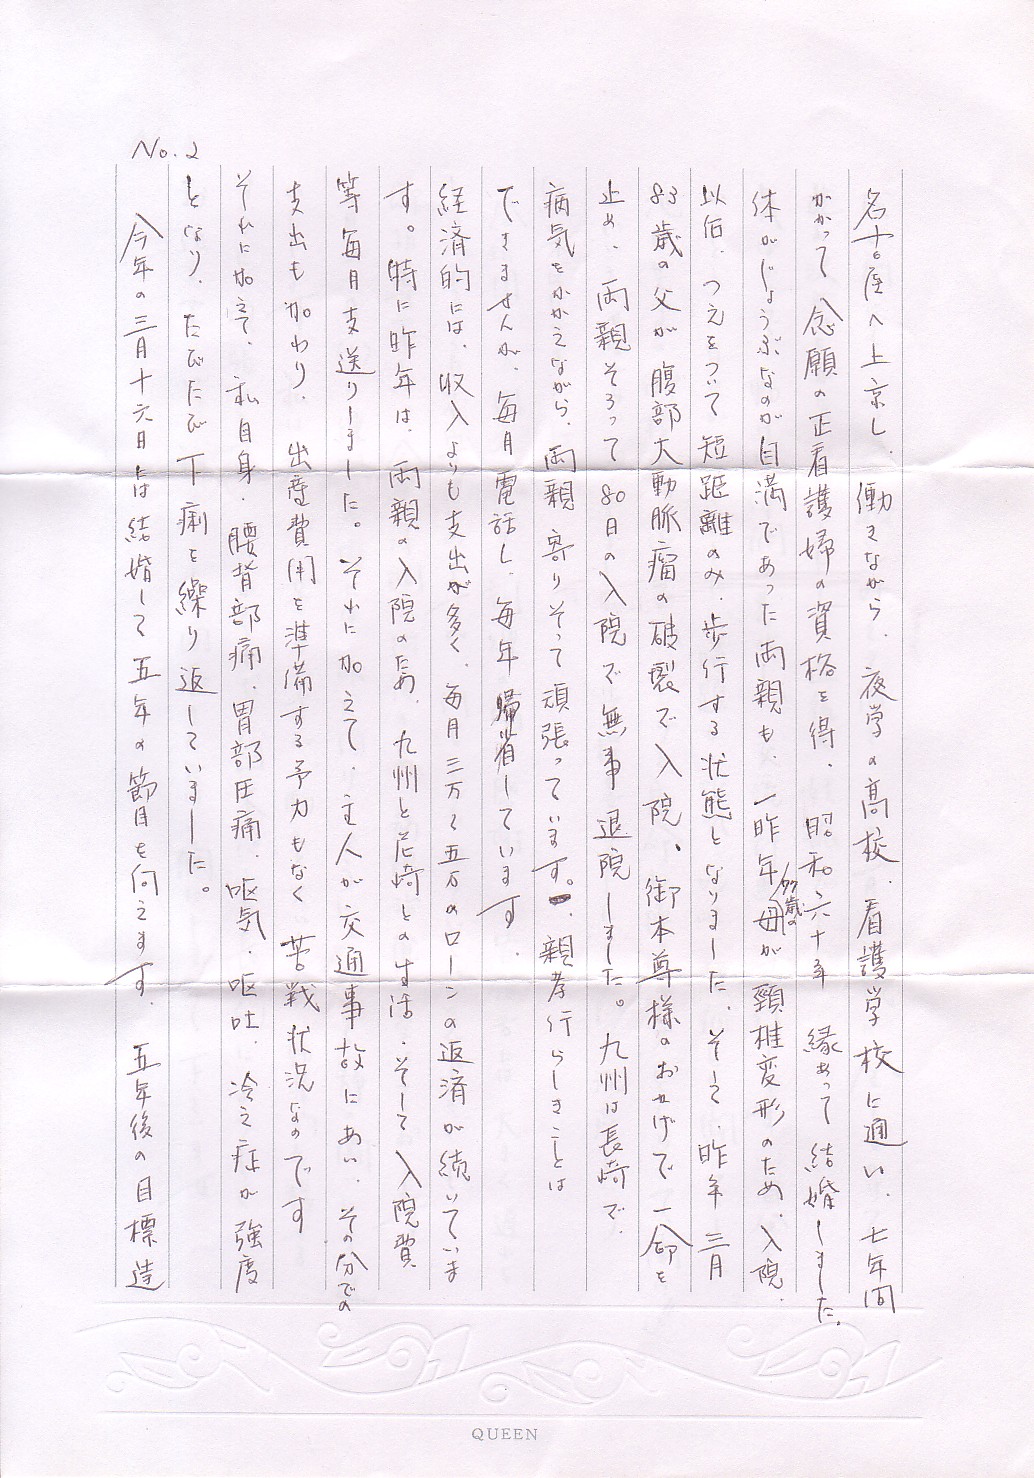 No.2
名古屋へ上京し、働きながら、夜学の高校、看護学校に通い、七年間
かかって念願の正看護婦の資格を得、昭和六十年縁あって結婚しました。
体がじょうぶなのが自満であった両親も、一昨年77歳の母が頸椎変形のため、入院、
以后、つえをついて短距離のみ、歩行する状態となりました。そして、昨年三月
83歳の父が腹部大動脈瘤の破裂で入院、御本尊様のおかげで一命を
止め、両親そろって80日の入院で無事退院しました。九州は長崎で、
病気をかかえながら、両親寄りそって頑張っています。親孝行らしきことは
できませんが、毎月電話し、毎年帰省しています。
経済的には、収入よりも支出が多く、毎月三万〜五万のローンの返済が続いていま
す。特に昨年は、両親の入院のため、九州と尼崎との生活、そして入院費
等毎月支送りしました。それに加えて、主人が交通事故にあい、その分での
支出も加わり、出産費用を準備する予力もなく苦戦状況なのです
それに加えて、私自身、腰背部痛、胃部圧痛、呕気、呕吐、冷え症が強度
となり、たびたび下痢を繰り返していました。
今年の三月十六日には結婚して五年の節目を向えます。五年後の目標達
QUEEN